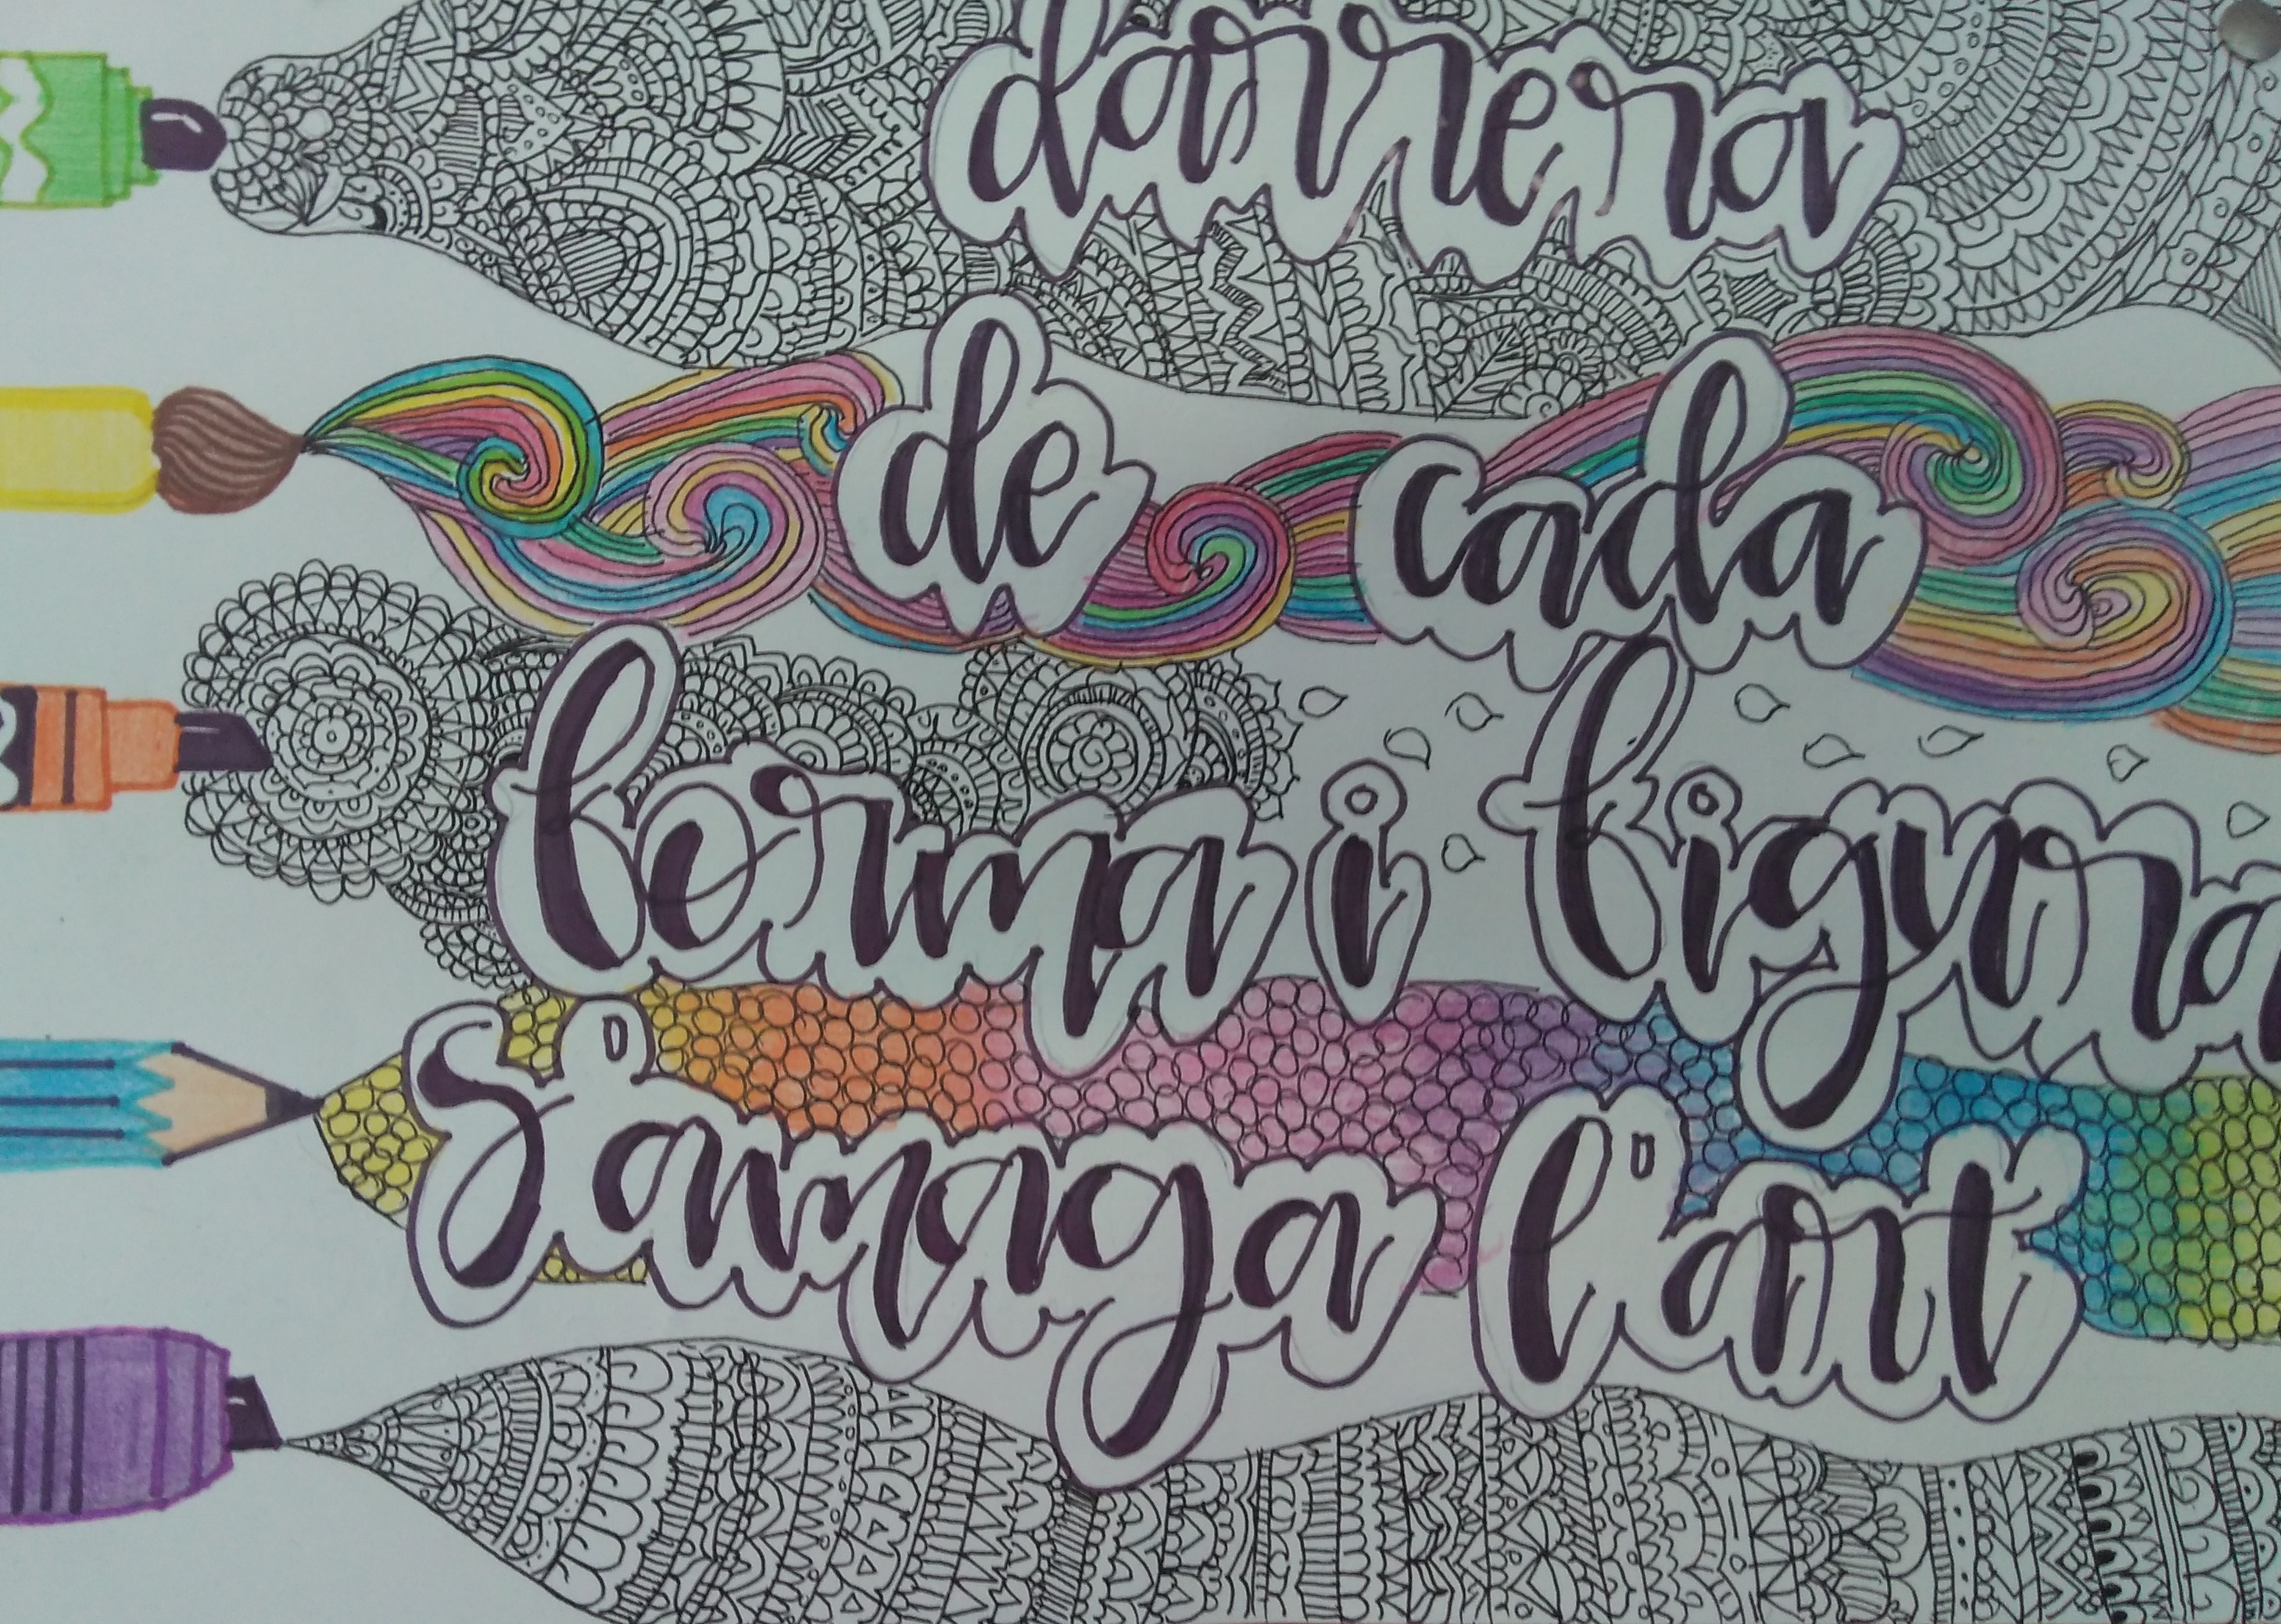 darrera
de cada
forma i figura
S'amaga l'art